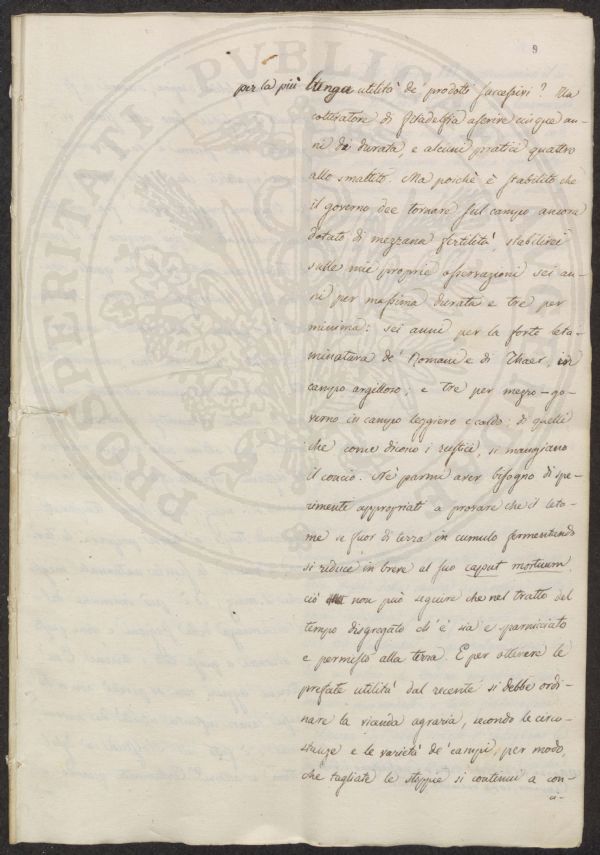 9
per la più lunga utilità de' prodotti successivi? Un
coltivatore di Filadelfia asserire cinque an-
ni di durata, e alcuni pratici quattro
allo smaltito. Ma poichè è stabilito che
il governo dee tornare sul campo ancora
dotato di mezzana fertilità, stabilirei
sulle mie proprie osservazioni sei an-
ni per massima durata e tre per
minima: sei anni per la forte leta-
minatura de' Romani e di Thaer, in
campo argilloso; e tre per mezzo-go-
verno in campo leggiero e caldo; di quelli
che come dicono i rustici, si mangiano
il concio. Nè parmi aver bisogno di spe-
rimenti appropriati a provare che il leta-
me se fuor di terra in cumulo fermentando
si riduce in breve al suo caput mortuum
ciò non può seguire che nel tratto del
tempo disgregato ch'è sia e sparnicciato
e permisto alla terra. E per ottenere le
prefate utilità dal recente si debbe ordi-
nare la vicenda agraria, secondo le circo-
stanze e le varietà de' campi, per modo,
che tagliate le stoppie si continui a con-
ci-
PROSPERITATI PUBLICAE